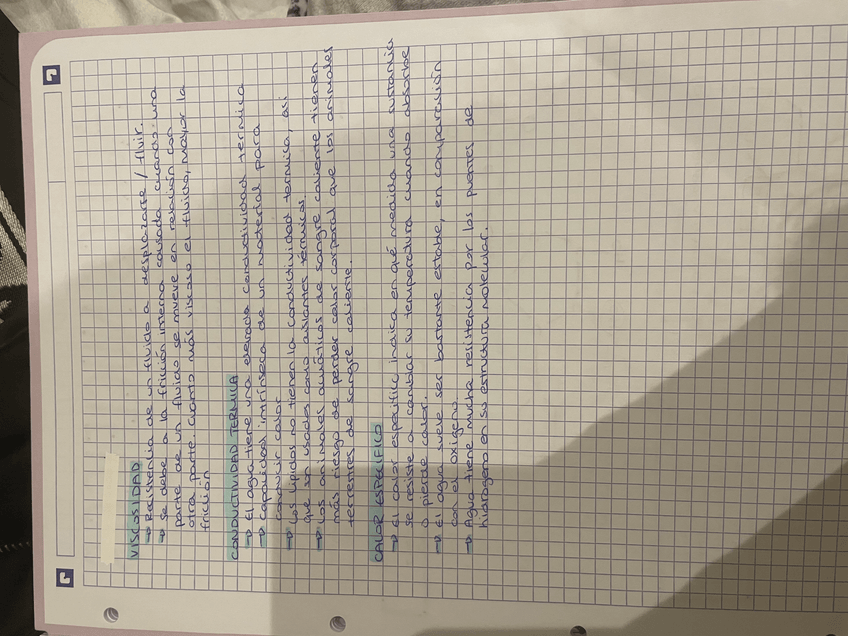 VISCOSIDAD
→ Resistencia de un fluido a desplazarse / fluir.
→ Se debe a la fricción interna causada cuando una
parte de un fluido se mueve en relación con
otra parte. Cuanto más viscoso el fluido, mayor la
fricción
CONDUCTIVIDAD TERMICA
→ El agua tiene una elevada conductividad termica
→ Capacidad intrínseca de un material para
conducir calor
→ Los lípidos no tienen la conductividad termica, asi
que son usados como aislantes térmicos.
→ Los animales acuáticos de sangre caliente tienen
más riesgo de perder calor corporal que los animales
terrestres de sangre caliente.
CALOR ESPECIFICO
→ El calor especifico indica en qué medida una sustancia
se resiste a cambiar su temperatura cuando absorbe
o pierde calor.
→ El agua suele ser bastante estable, en comparación
con el oxígeno.
→ Agua tiene mucha resistencia por los puentes de
hidrógeno en su estructura molecular.